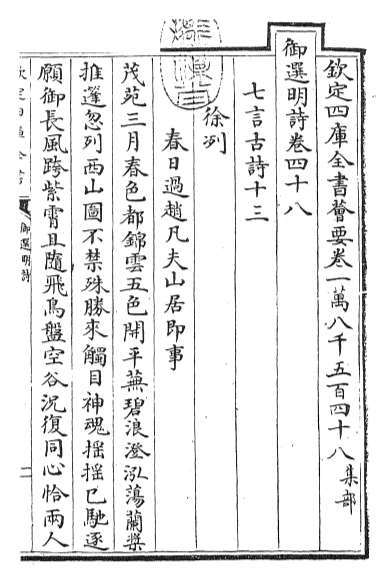 欽定四庫全書薈要卷一萬八千五百四十八 集部
御選明詩卷四十八
七言古詩十三
徐列
春日過趙凡夫山居即事
茂苑三月春色都錦雲五色開平蕪碧浪澄泓蕩蘭槳
推篷忽列西山圖不禁殊勝來觸目神魂搖搖已馳逐
願御長風跨紫霄且隨飛鳥盤空谷況復同心恰兩人
御選明詩